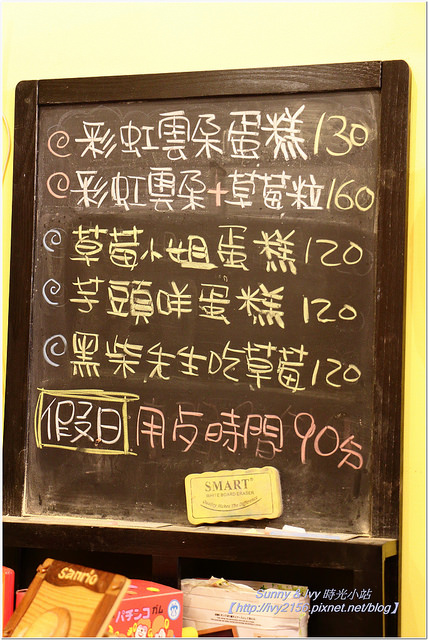 彩虹雲朵蛋糕130
彩虹雲朵+草莓粒160
草莓小姐蛋糕120
芋頭咩蛋糕120
黑柴先生吃草莓120
假日 用歺時間90分
SMART
WHITE BOARD ERASER
Sanrio
パチンコガム
Sunny & Ivy 時光小站
【http://ivy2155.pixnet.net/blog】